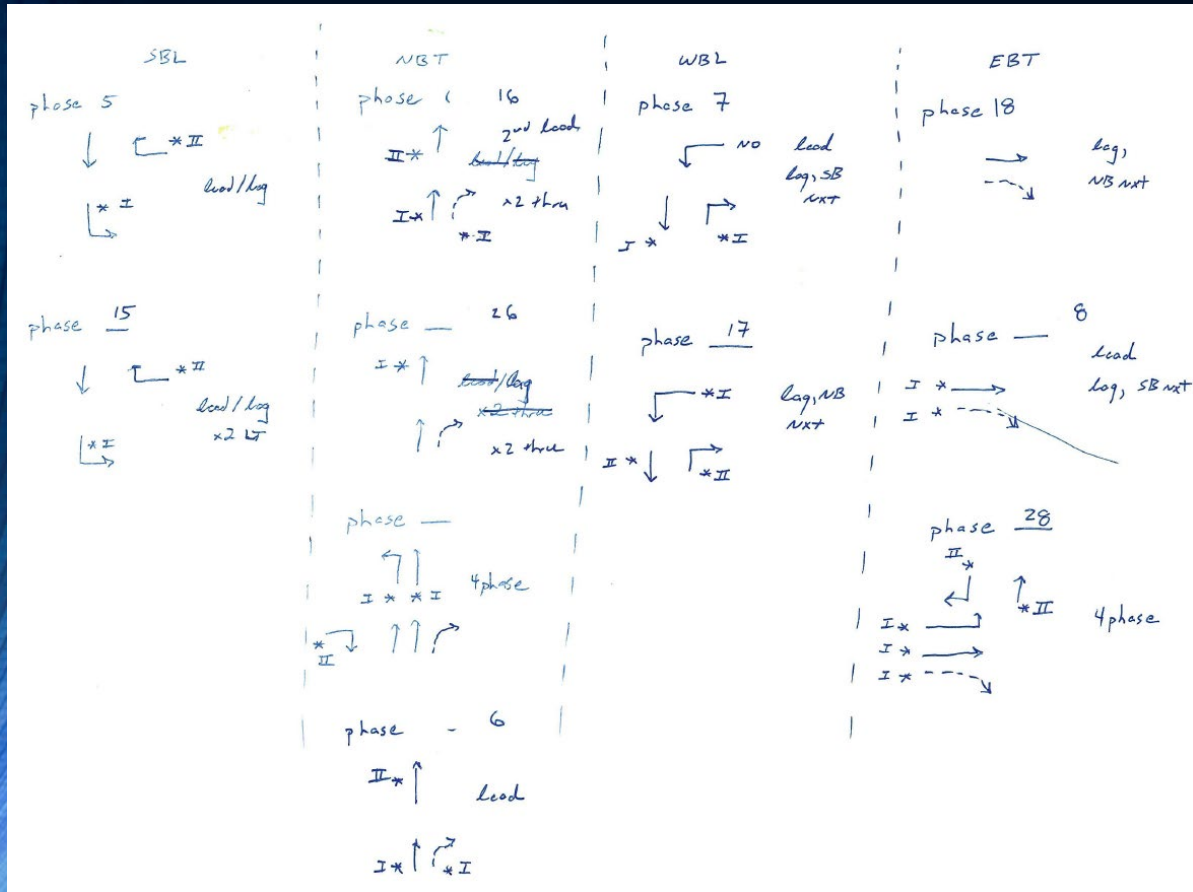 SBL
phase 5
* II
lead/lag
* I
phase 15
* II
lead/lag
x2 LT
* I
NBT
phase ( 16
2nd lead
II *
lead/lag
I *
x2 thru
* I
phase — 26
I *
lead/lag
x2 thru
x2 thru
phase —
I * * I
4 phase
*
II
phase - 6
II *
lead
I *
* I
WBL
phase 7
NO lead
lag, SB
NXT
I *
* I
phase 17
* I
lag, NB
NXT
II *
* II
EBT
phase 18
lag,
NB NXT
phase — 8
lead
I *
lag, SB NXT
I *
phase 28
II
*
* II
I *
4 phase
I *
I *